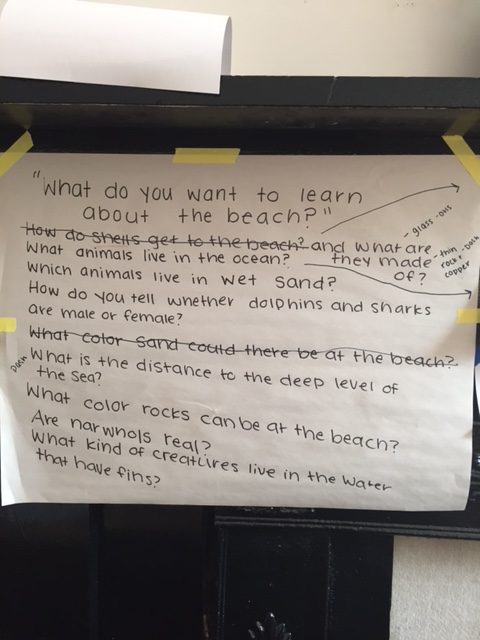 "What do you want to learn
about the beach?"
How do shells get to the beach? and what are
they made
of?
- glass - Otis
- thin - Dash
rock +
copper
What animals live in the ocean?
Which animals live in wet sand?
How do you tell whether dolphins and sharks
are male or female?
What color sand could there be at the beach?
Dash
What is the distance to the deep level of
the sea?
What color rocks can be at the beach?
Are narwhols real?
What kind of creatures live in the water
that have fins?